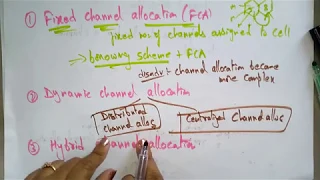 ① Fixed channel allocation (FCA)
fixed no. of channels assigned to cell
→ borrowing scheme + FCA
disadv :- channel allocation became
more complex
② Dynamic channel allocation
Distributed channel alloc
Centralized Channel alloc
③ Hybrid channel allocation